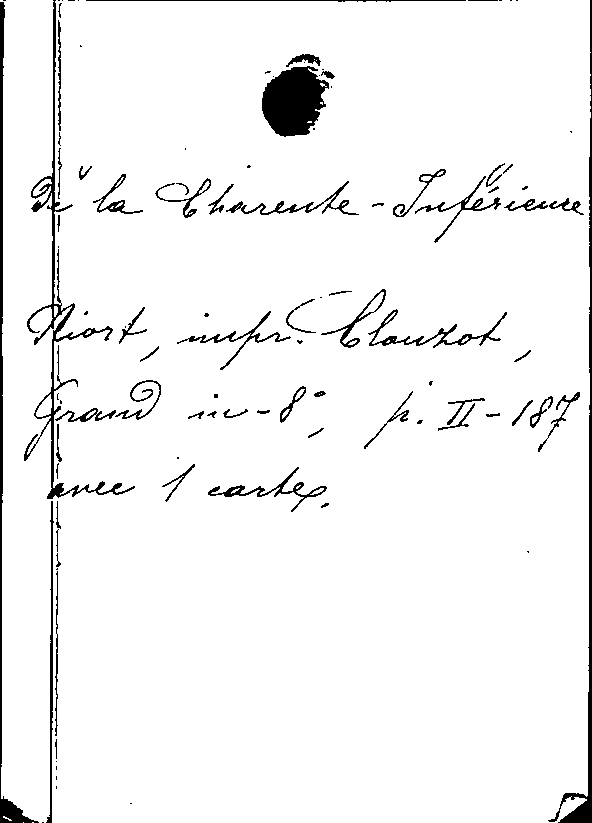 De la Charente-Inférieure
Niort, impr. Clouzot,
Grand in-8°, p. II-187
avec 1 carte.